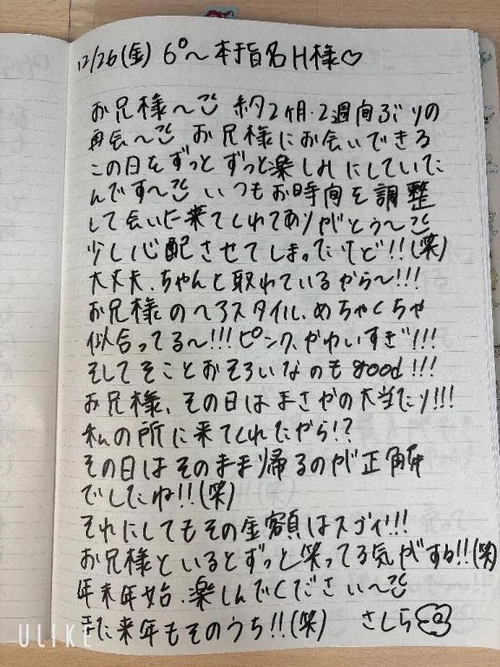 12/26(金) 6º〜本指名H様♡
お兄様〜 約2ヶ月・2週間ぶりの
再会〜 お兄様にお会いできる
この日をずっとずっと楽しみにしていた
んです〜 いつもお時間を調整
して会いに来てくれてありがとう〜
少し心配させてしまったけど!!(笑)
大丈夫、ちゃんと取れているから〜!!!
お兄様のヘアスタイル、めちゃくちゃ
似合ってる〜!!!ピンク、かわいすぎ!!!
そしてそことおそろいなのもgood!!!
お兄様、その日はまさかの大当たり!!!
私の所に来てくれたから!?
その日はそのまま帰るのが正解
でしたね!!(笑)
それにしてもその金額はスゴイ!!!
お兄様といるとずっと笑ってる気がする!!(笑)
年末年始、楽しんでください〜
また来年もそのうち!!(笑) さしら
ULIKE